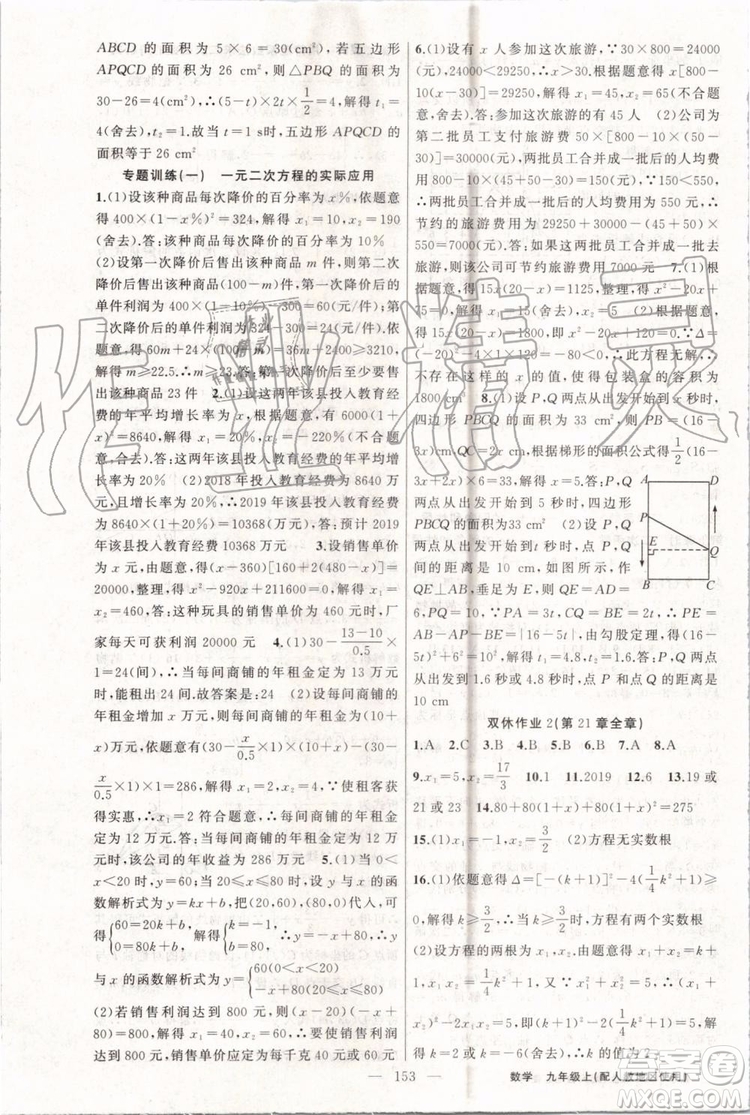 ABCD 的面积为 5×6=30(cm²), 若五边形
APQCD 的面积为 26 cm², 则△PBQ 的面积为
30-26=4(cm²),∴(5-t)×2t×1/2=4,解得 t₁=
4(舍去),t₂=1.故当 t=1 s时,五边形 APQCD 的
面积等于 26 cm²
专题训练(一) 一元二次方程的实际应用
1.(1)设该种商品每次降价的百分率为 x%,依题意
得 400×(1-x%)²=324,解得 x₁=10,x₂=190
(舍去).答:该种商品每次降价的百分率为 10%
(2)设第一次降价后售出该种商品 m 件,则第二次
降价后售出该种商品(100-m)件,第一次降价后的
单件利润为400×(1-10%)-300=60(元/件);第
二次降价后的单件利润为324-300=24(元/件).
依题意得 60m+24×(100-m)=36m+2400≥3210,
解得 m≥22.5,∴m≥23.答:第一次降价后至少要售
出该种商品 23 件 2.(1)设这两年该县投入教育经
费的年平均增长率为 x, 根据题意得 6000(1+
x)²=8640,解得 x₁=0.2=20%,x₂=-220%(不合题
意,舍去).答:这两年该县投入教育经费的年平均增
长率为 20% (2)2018 年投入教育经费为 8640 万
元,且增长率为20%,∴2019 年该县投入教育经费为
8640×(1+20%)=10368(万元).答:预计 2019
年该县投入教育经费 10368 万元 3.设销售单价
为 x 元, 由题意得(x-360)[160+2(480-x)]=
20000,整理,得 x²-920x+211600=0,解得 x₁=
x₂=460.答:这种玩具的销售单价为 460 元时,厂
家每天可获利润 20000 元 4.(1)30-(13-10)/0.5×
1=24(间),∴当每间商铺的年租金定为 13 万元
时,能租出 24 间.故答案是:24 (2)设每间商铺的
年租金增加 x 万元,则每间商铺的年租金为(10+
x)万元,依题意有(30-x/0.5×1)×(10+x)-(30-
x/0.5×1)×1=286,解得 x₁=2,x₂=4,∵使租客获
得实惠,∴x₁=2 符合题意,∴每间商铺的年租金定
为 12 万元.答:当每间商铺的年租金定为 12 万元
时,该公司的年收益为 286 万元 5.(1)当 0<
x<20 时,y=60;当 20≤x≤80 时,设 y 与 x 的函
数解析式为 y=kx+b,把(20,60),(80,0)代入,可
得{60=20k+b, 0=80k+b,解得{k=-1, b=80, ∴y=-x+80,∴y
与 x 的函数解析式为 y={60(0<x<20) -x+80(20≤x≤80)
(2)若销售利润达到 800 元,则(x-20)(-x+80)=
800,解得 x₁=40,x₂=60,∴要使销售利润达到 800
元,销售单价应定为每千克 40 元或 60 元
6.(1)设有 x 人参加这次旅游,∵30×800=24000
(元),24000<29250,∴x>30.根据题意得 x[800-
10(x-30)]=29250,解得 x₁=45,x₂=65(不合题
意,舍去).答:参加这次旅游的人有 45 人 (2)由题意得
第二批员工支付旅游费 50×[800-10×(50-
30)]=30000(元),若两批员工合并后的人均费用
800-10×(45+50-30)=150(元),∵150<500,
∴两批员工合并后的人均旅游费用为 500 元,∴可
节约的旅游费用为 29250+30000-(45+50)×
500=7000(元).答:如果两批员工合并后去旅游,
公司可节约旅游费用 7000 元 7.(1)根据
题意得 15x(20-x)=1125,整理得 x²-20x+
75=0,解得 x₁=15(舍去),x₂=5 (2)不能.理由如下:
15x(20-x)=1800,即 x²-20x+120=0,∵Δ=
(-20)²-4×1×120=-80<0,∴此方程无解,∴
不存在这样的 x 的值,使得包装盒的容积为
1800 cm³ 8.(1)设P,Q两点从出发开始到 x 秒时,
四边形 PBCQ 的面积为 33 cm²,则 PB=(16-
3x)cm,QC=2x cm,根据梯形的面积公式得1/2(16-
3x+2x)×6=33,解得 x=5.答:P,Q
两点从出发开始到 5 秒时,四边形
PBCQ 的面积为33 cm² (2)设P,Q
两点从出发开始到 t 秒时,点 P,Q
间的距离是 10 cm,作
QE⊥AB,垂足为 E,则 QE=AD=
6,PQ=10,∵PA=3t,CQ=BE=2t,∴PE=
AB-AP-BE=|16-5t|,由勾股定理得(16-
5t)²+6²=10²,解得 t₁=4.8,t₂=1.6.答:P,Q两点
从出发到 1.6 秒或 4.8 秒时,点 P 和点 Q 的距离是
10 cm
A D
P
E Q
B C
双休作业 2(第 21 章全章)
1.A 2.C 3.B 4.B 5.B 6.A 7.A 8.A
9.x₁=5,x₂=17/3 10.1 11.2019 12.13 13.19 或
21 或 23 14.80+80(1+x)+80(1+x)²=275
15.(1)x₁=-1,x₂=3/2 (2)方程无实数根
16.(1)依题意得 Δ=[-(k+1)]²-4(1/4k²+1)≥
0,解得 k≥3/2,∴当 k≥3/2时,方程有两个实数根
(2)设方程的两根为 x₁,x₂,由题意得 x₁+x₂=
k+1,x₁x₂=1/4k²+1,又∵x₁²+x₂²=5,
∴k 的值为 2
153
数学 九年级上(配人教地区使用)
作业精灵
答案圈
MXQE.COM